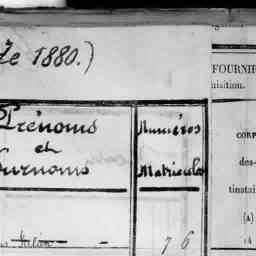 de 1880.)
Prénoms
et
Surnoms
Numéros
Matricules
76
FOURNI
uisition.
CORP
des-
tinstai
(A)